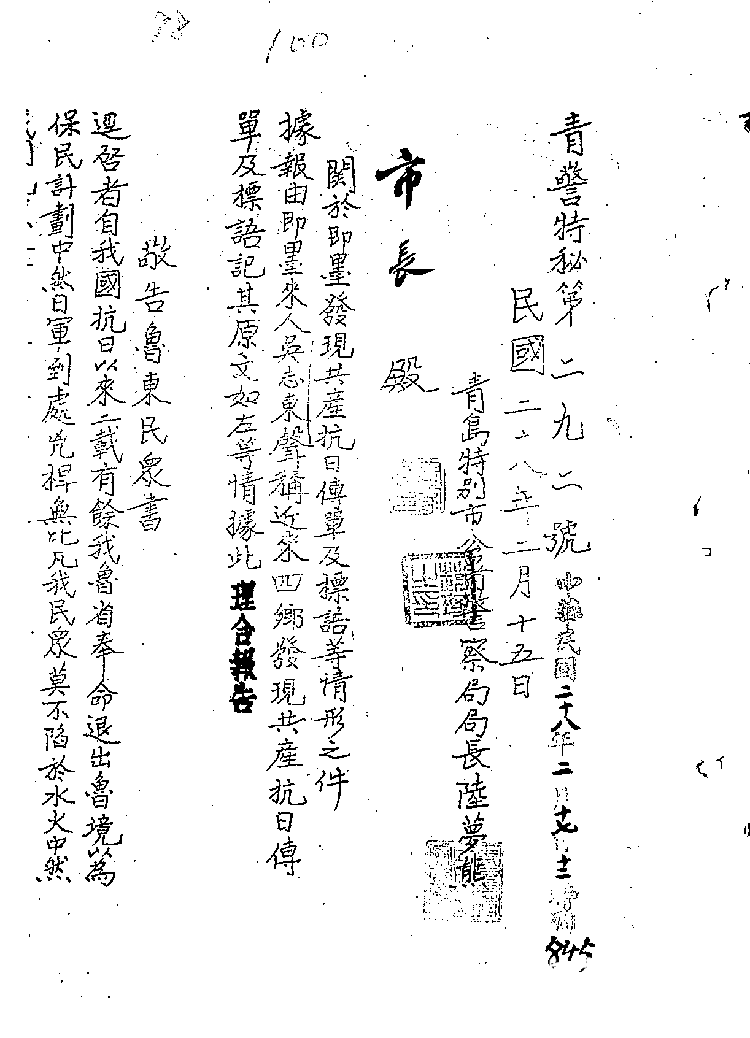 98
100
青警特秘第二九二號
中華民國二十八年二月十七日
845
民國二十八年二月十五日
青島特別市公署警察局局長陸夢熊
市長殿
関於即墨發現共產抗日傳單及標語等情形之件
據報由即墨來人吳志東聲稱近來四鄉發現共產抗日傳
單及標語記其原文如左等情據此理合報告
敬告魯東民眾書
逕啓者自我國抗日以來二載有餘我魯省奉命退出魯境以為
保民計劃中然日軍到處兇桿無比凡我民眾莫不陷於水火中然